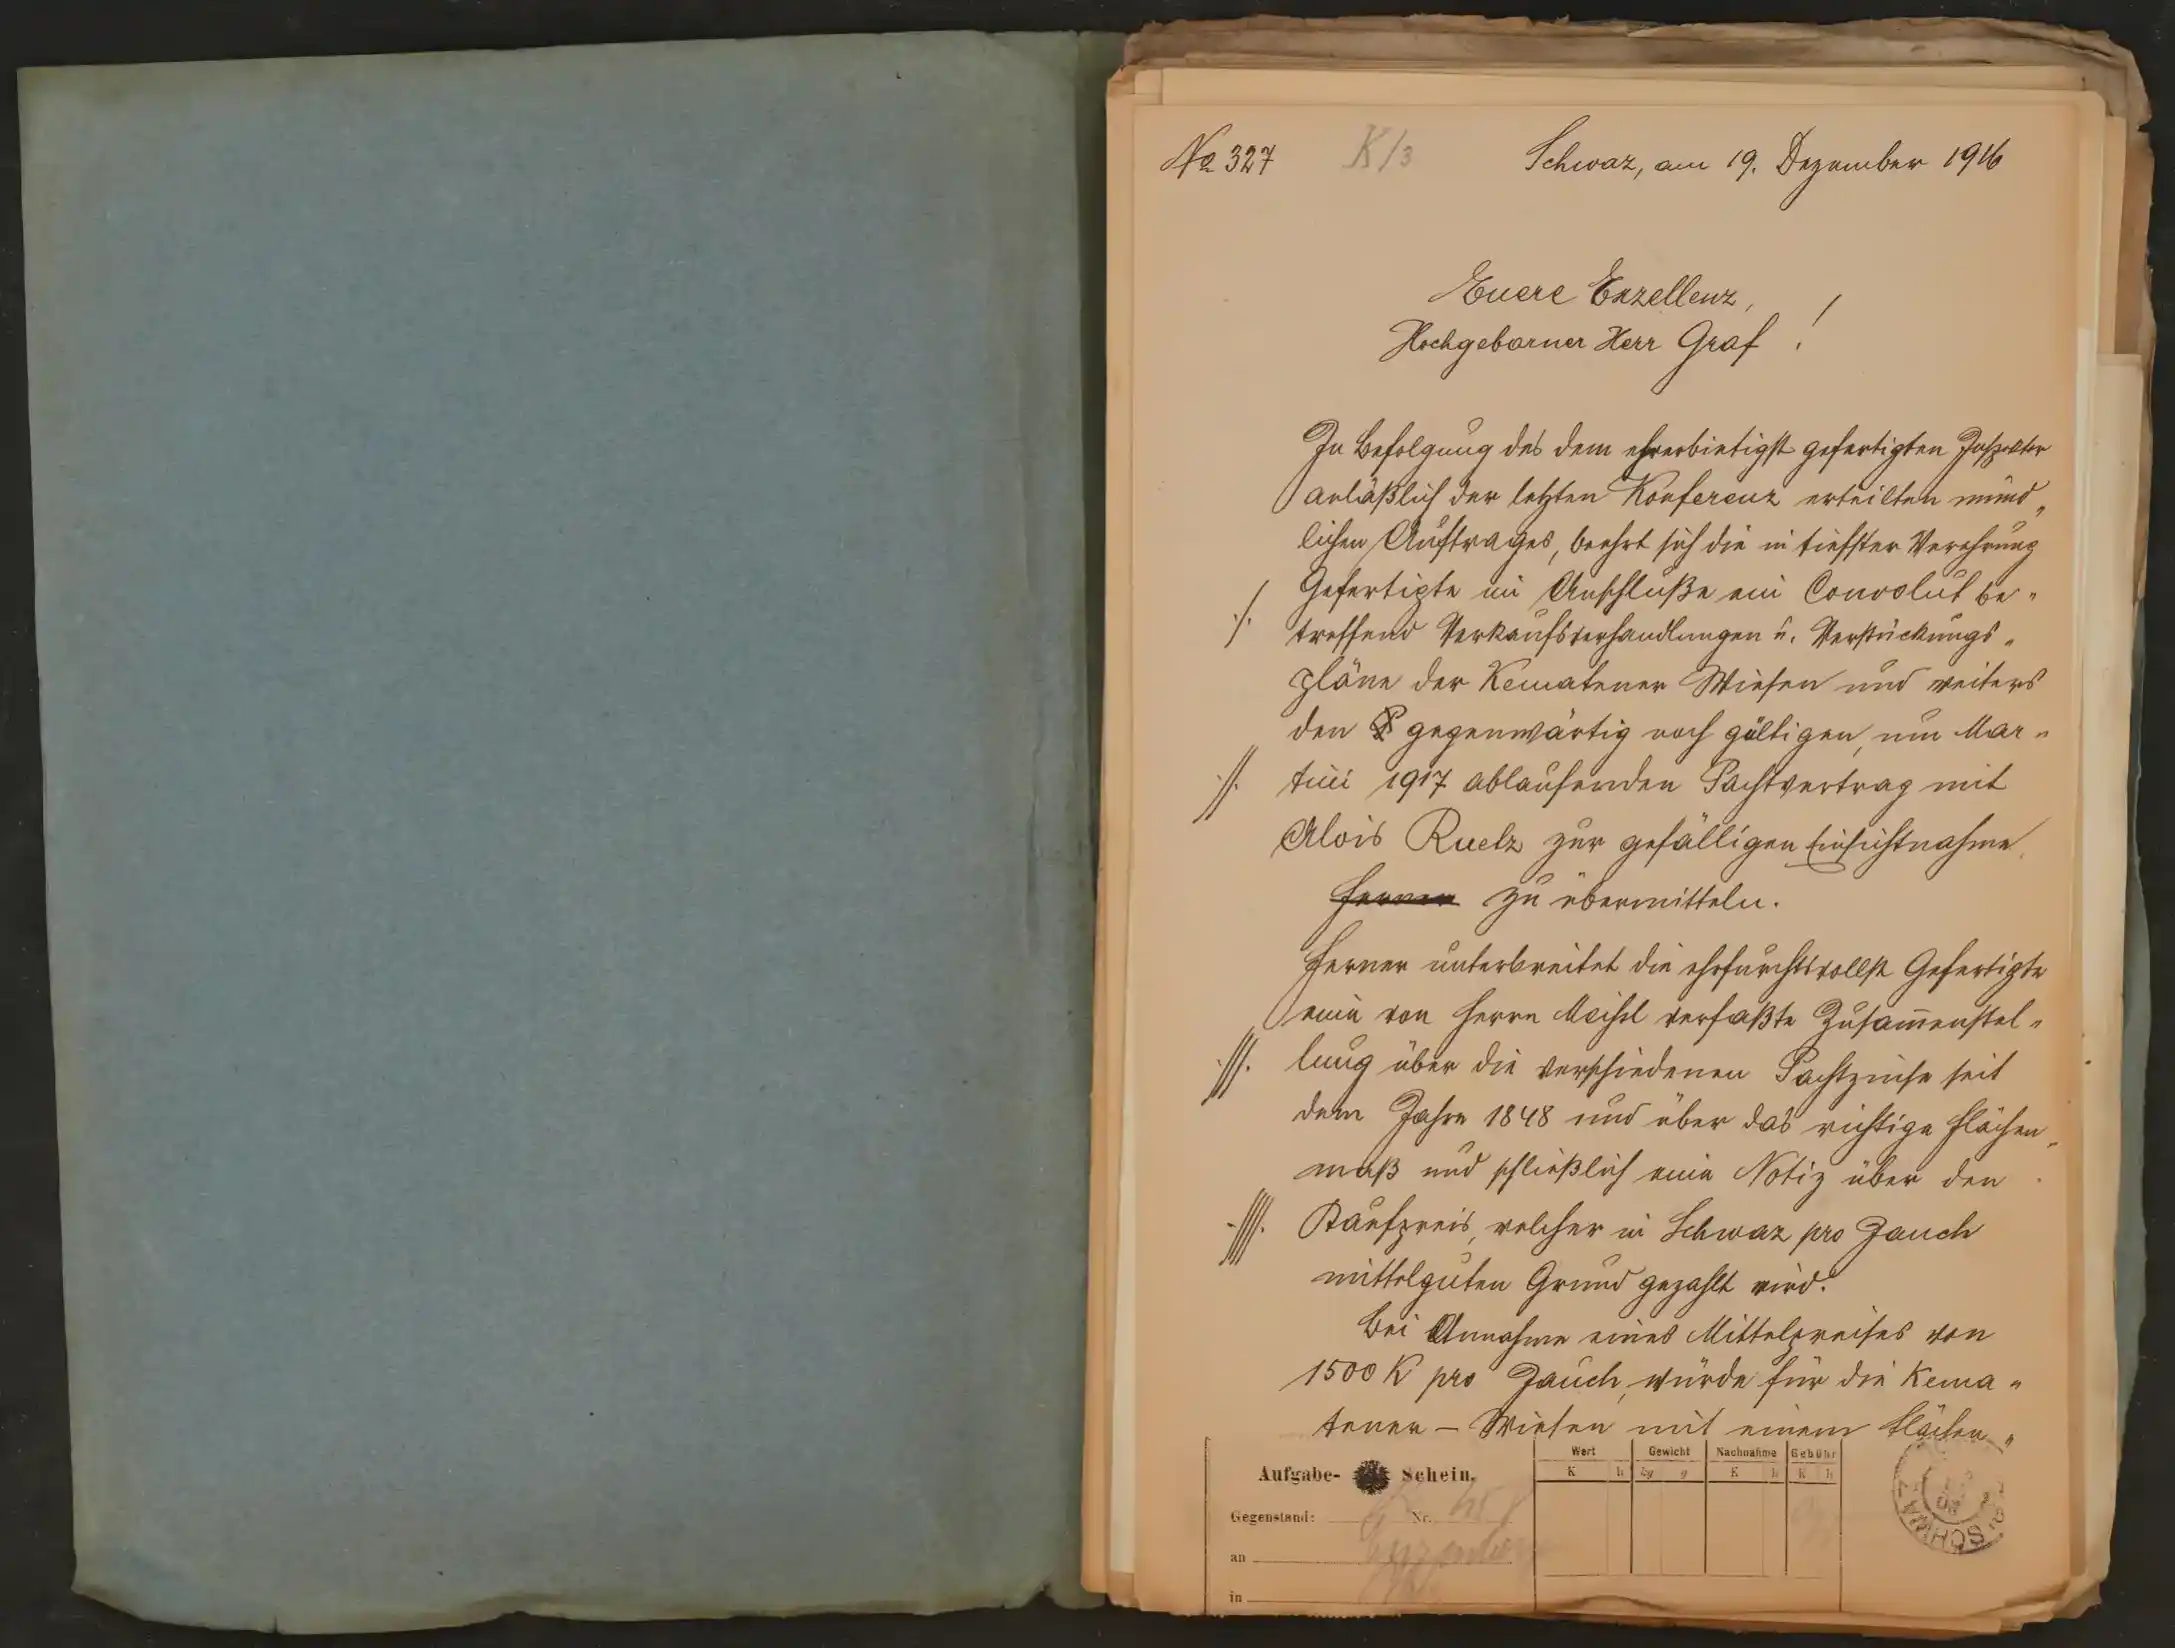 № 327 K/3 Schwaz, am 19. Dezember 1916
Euere Exzellenz,
Hochgeborner Herr Graf !
In Befolgung des dem ehrerbietigst gefertigten Inspektor
anläßlich der letzten Konferenz erteilten münd„
lichen Auftrages, beehrt sich die in tiefster Verehrung
./. Gefertigte im Anschluße ein Convolut be„
treffend Verkaufsverhandlungen u. Verstückungs„
pläne der Kematener Wiesen und weiters
den gegenwärtig noch gültigen, um Mar„
.//. tini 1917 ablaufenden Pachtvertrag mit
Alois Ruetz zur gefälligen Einsichtnahme
ferner zu übermitteln.
Ferner unterbreitet die ehrfurchtsvollst Gefertigte
eine von Herrn verfaßte Zusammenstel„
.///. lung über die verschiedenen Pachtzinse seit
dem Jahre 1848 und über das richtige Flächen„
maß und schließlich eine Notiz über den
.////. Kaufpreis, welcher in Schwaz pro Jauch
mittelguten Grund gezahlt wird.
Bei Annahme eines Mittelpreises von
1500 K pro Jauch, würde für die Kema„
tener – Wiesen mit einem Flächen„
Aufgabe- Schein.
Wert Gewicht Nachnahme Gebühr
K h kg g K h K h
Gegenstand: Nr.
an
in
SCHWAZ